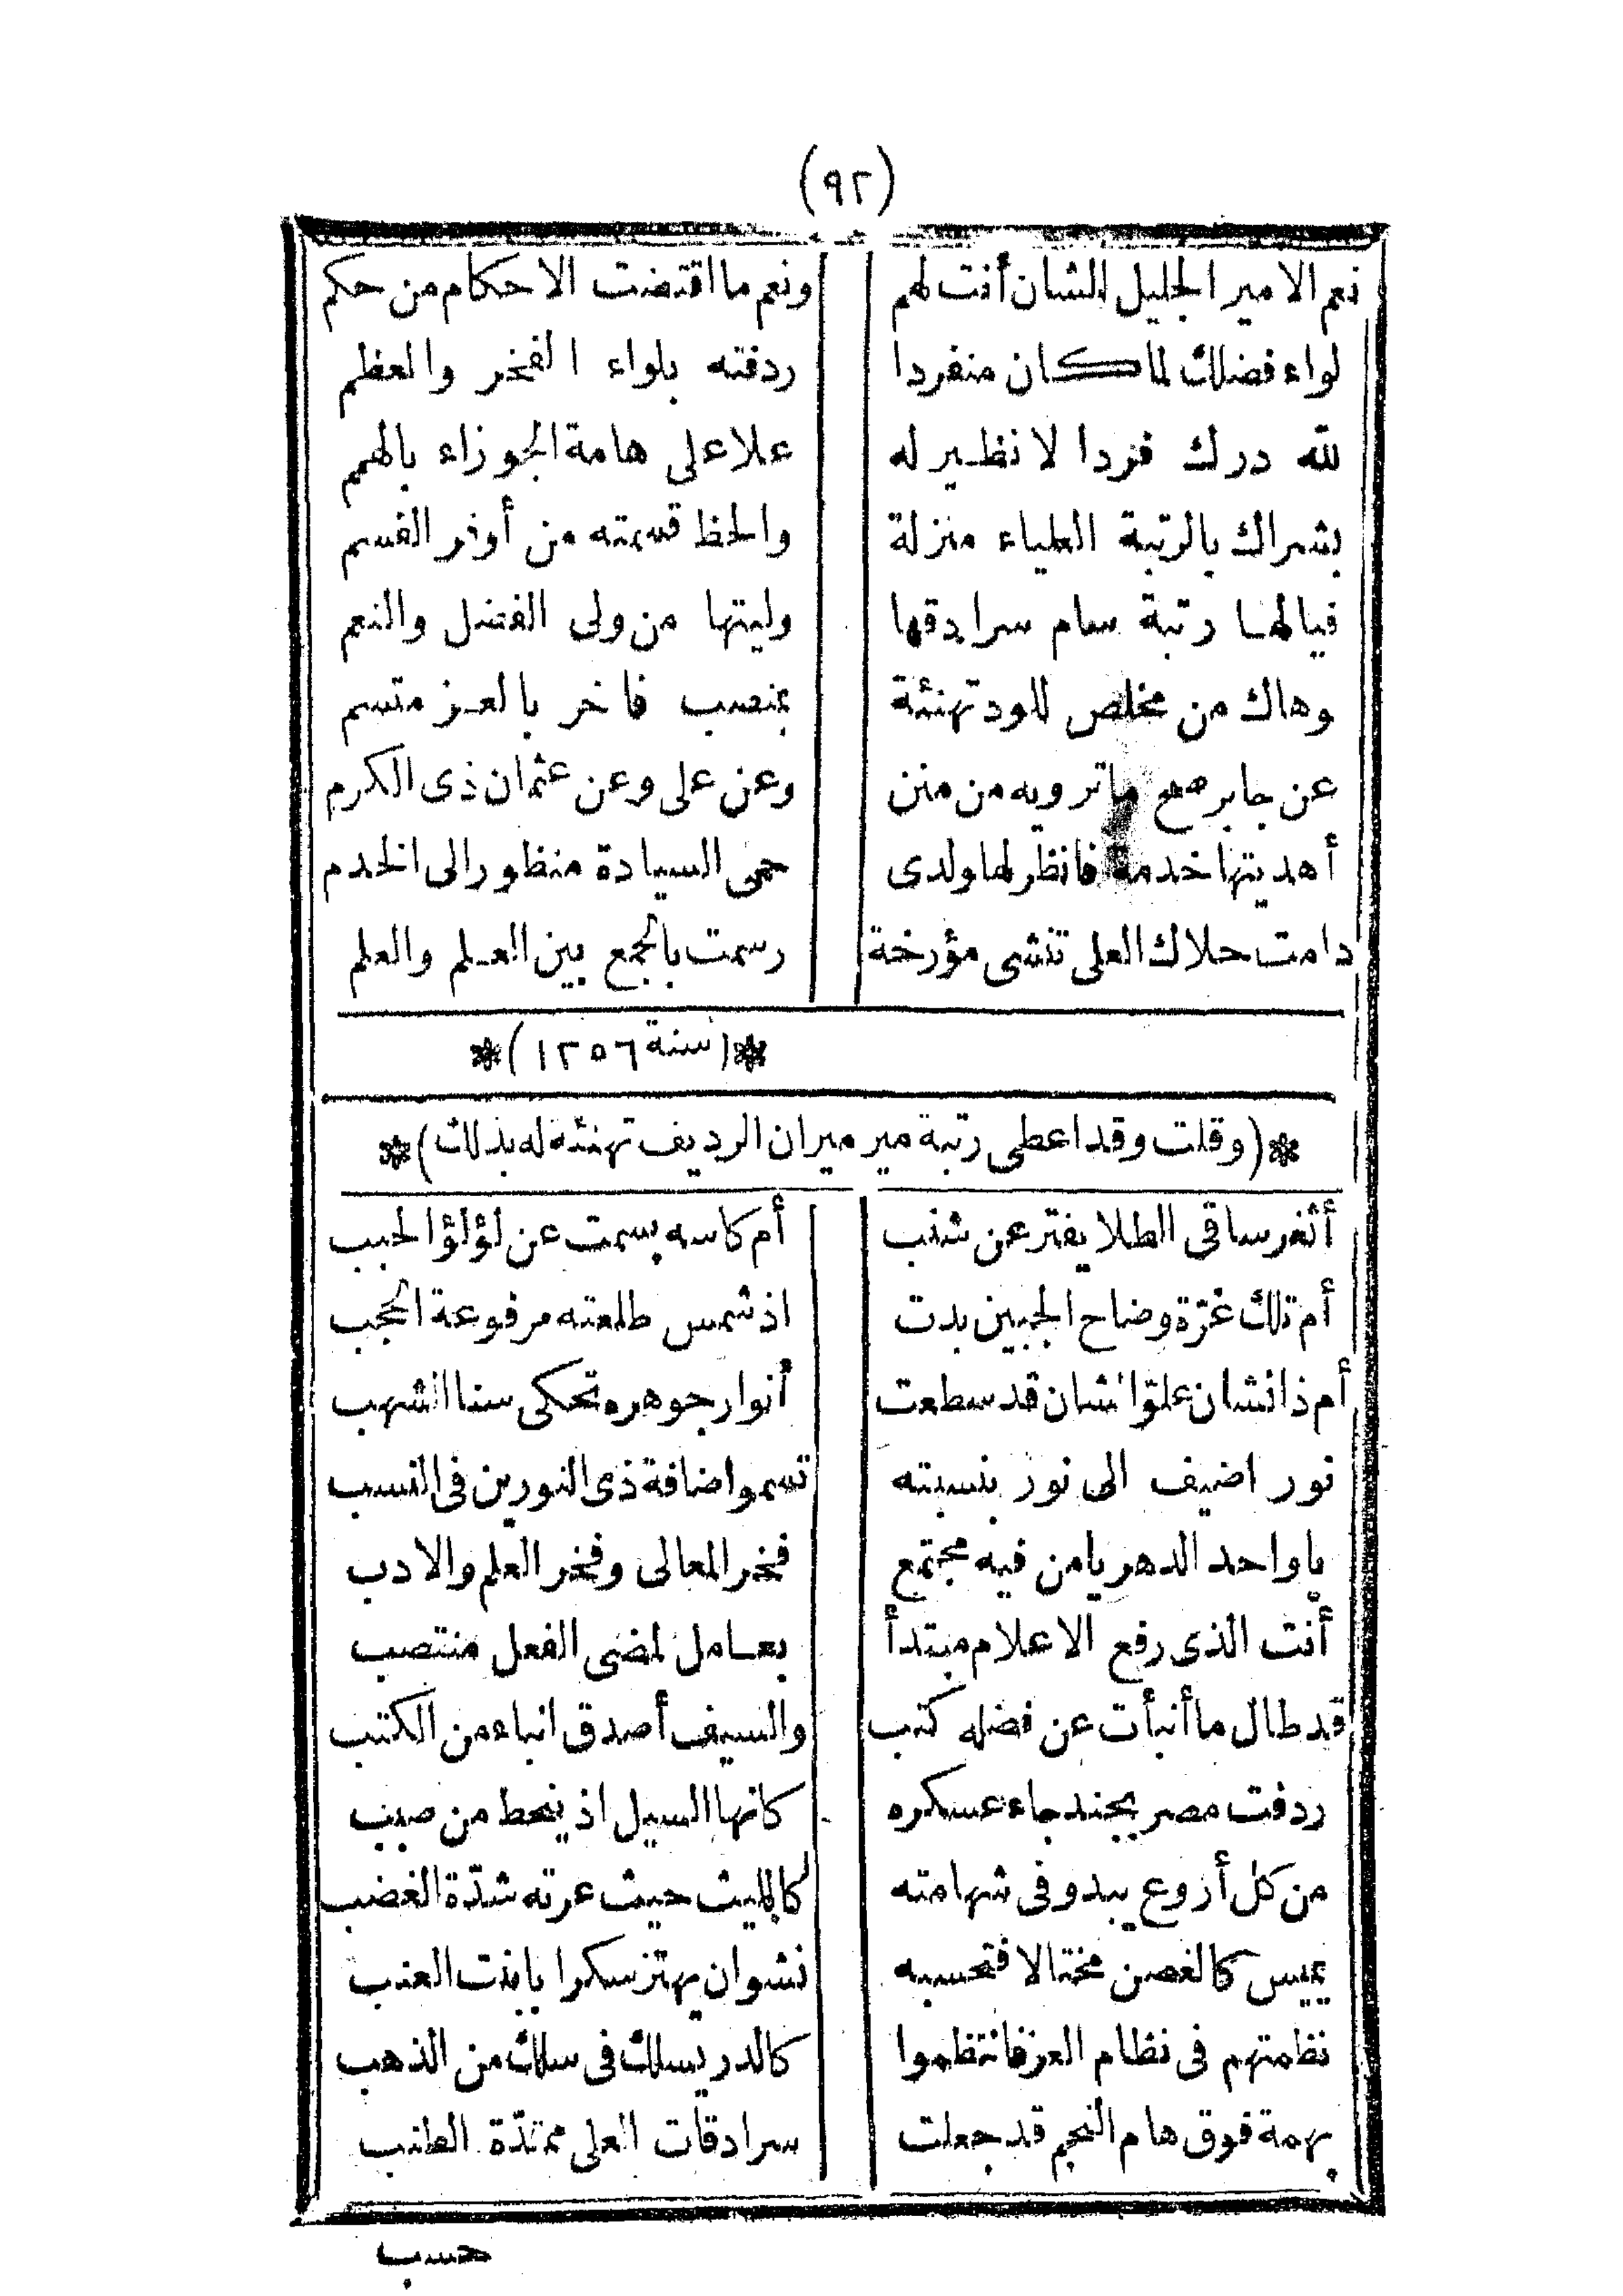 (٩٢)
نعم الامير الجليل الشان أنت لهم ونعم ما اقتضت الاحكام من حكم
لواء فضلك لما كان منفردا ردفته بلواء الفخر والعظم
لله درك فردا لا نظير له علا على هامة الجوزاء بالهمم
بشراك بالرتبة العلياء منزلة والحظ قسمته من أوفر القسم
فيالها رتبة سام سرادقها وليتها من ولى الفضل والنعم
وهاك من مخلص للود تهنئة بمنصب فاخر بالعز متسم
عن جابر صح ما ترويه من منن وعن على وعن عثمان ذى الكرم
أهديتها خدمة فانظر لها ولدى حمى السيادة منظور الى الخدم
دامت حلاك العلى تنشى مؤرخة رسمت بالجمع بين العلم والعلم
*(سنة ١٢٥٦)*
*(وقلت وقد اعطى رتبة مير ميران الرديف تهنئة له بذلك)*
أثغر ساقى الطلا يفتر عن شنب أم كاسه بسمت عن لؤلؤ الحبب
أم تلك غرّة وضاح الجبين بدت اذ شمس طلعته مرفوعة الحجب
أم ذا نشان علوّ الشان قد سطعت أنوار جوهره تحكى سنا الشهب
نور اضيف الى نور بنسبته تسمو اضافة ذى النورين فى النسب
يا واحد الدهر يا من فيه مجتمع فخر المعالى وفخر العلم والادب
أنت الذى رفع الاعلام مبتدأ بعامل لمضى الفعل منتصب
قد طال ما أنبأت عن فضله كتب والسيف أصدق انباء من الكتب
ردفت مصر بجند جاء عسكره كانها السيل اذ ينحط من صبب
من كل أروع يبدو فى شهامته كالليث حيث عرته شدّة الغضب
يميس كالغصن مختالا فتحسبه نشوان يهتز سكرا بابنت العنب
نظمتهم فى نظام العز فانتظموا كالدر يسلك فى سلك من الذهب
بهمة فوق هام النجم قد جعلت سرادقات العلى ممتدّة الطنب
حسب